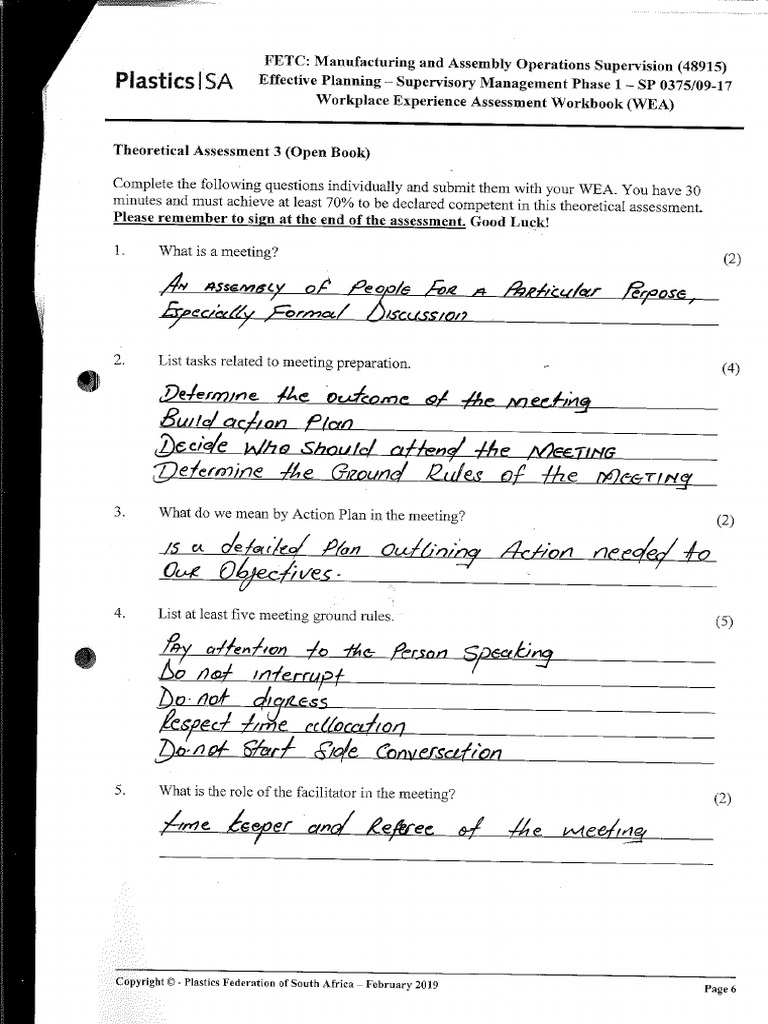 FETC: Manufacturing and Assembly Operations Supervision (48915)
Plastics|SA Effective Planning – Supervisory Management Phase 1 – SP 0375/09-17
Workplace Experience Assessment Workbook (WEA)
Theoretical Assessment 3 (Open Book)
Complete the following questions individually and submit them with your WEA. You have 30
minutes and must achieve at least 70% to be declared competent in this theoretical assessment.
Please remember to sign at the end of the assessment. Good Luck!
1. What is a meeting? (2)
An assembly of People For a Particular Perpose,
Especially Formal Discussion
2. List tasks related to meeting preparation. (4)
Determine the outcome of the meeting
Build action Plan
Decide who should attend the MEETING
Determine the Ground Rules of the MEETING
3. What do we mean by Action Plan in the meeting? (2)
is a detailed Plan outlining Action needed to
Our Objectives.
4. List at least five meeting ground rules. (5)
Pay attention to the Person Speaking
Do not interrupt
Do not digress
Respect time allocation
Do not Start Side Conversation
5. What is the role of the facilitator in the meeting? (2)
time keeper and Referee of the meeting
Copyright © - Plastics Federation of South Africa – February 2019
Page 6